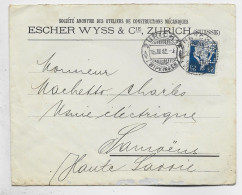 SOCIÉTÉ ANONYME DES ATELIERS DE CONSTRUCTIONS MÉCANIQUES
ESCHER WYSS & Cie, ZURICH (SUISSE)
Monsieur
Machetto Charles
Usine électrique
Samoëns
(Haute Savoie)